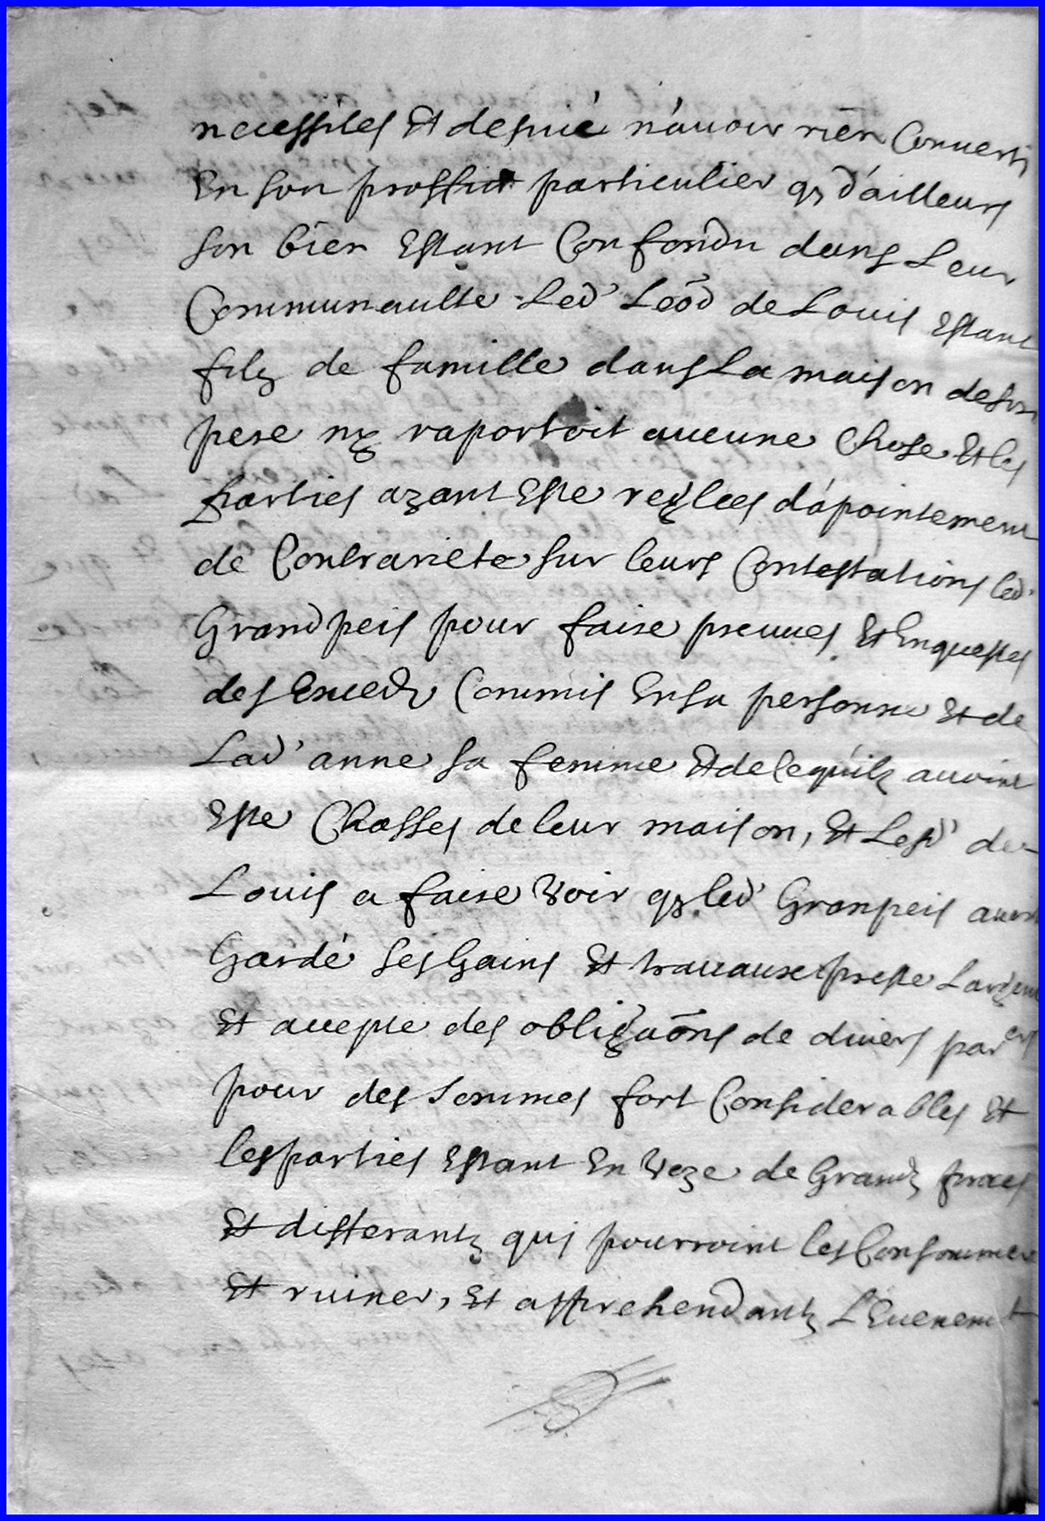 necessites Et desnie n'auoir rien Conuerti
En son proffict particulier qz d'ailleurs
son bien Estant Confondu dans Leur
Communaulte Led' Leod de Louis Estant
filz de famille dans La maison de son
pere ny raportoit aucune Chose Et les
parties ayant Este reglees d'apointement
de Contrariete sur leurs Contestations led'
Grandpeis pour faire preuues Et Enquestes
des Exceds Commis En sa personne Et de
Lad' anne sa femme Et de ce quilz auoint
Este Chasses de leur maison, Et Lesd' de
Louis a faire Voir qz led' Granpeis auoit
Gardé ses Gains Et trauaux preste Largent
Et accepte des obligaons de diuers par ers
pour des sommes fort Considerables Et
les parties Estant En Voye de Grands proces
Et differantz qui pourroint les Consommer
Et ruiner, Et apprehendantz L'Euenemt